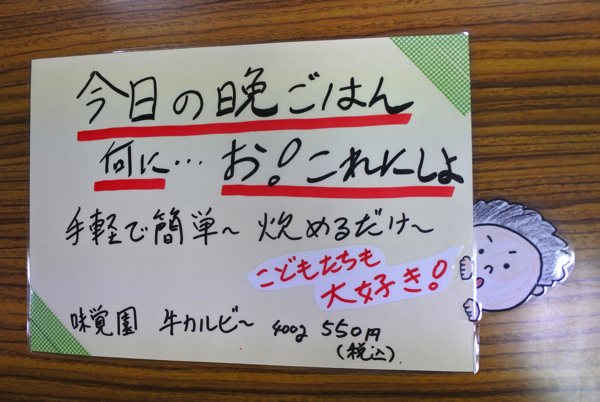 今日の晩ごはん
何に… お!これにしよ
手軽で簡単～ 炒めるだけ～
こどもたちも
大好き!
味覚園 牛カルビ～ 400g 550円
(税込)